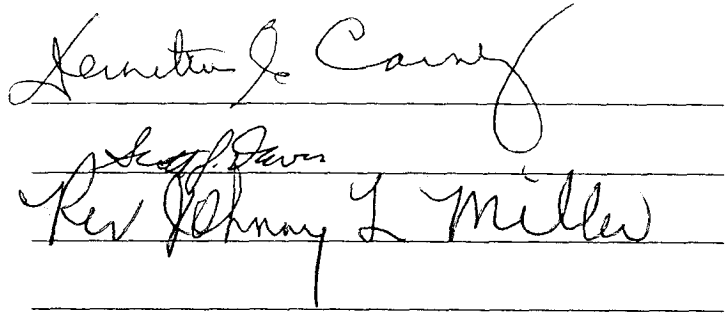 J. Carney
Scott J. Davis
Rev Johnny L Miller